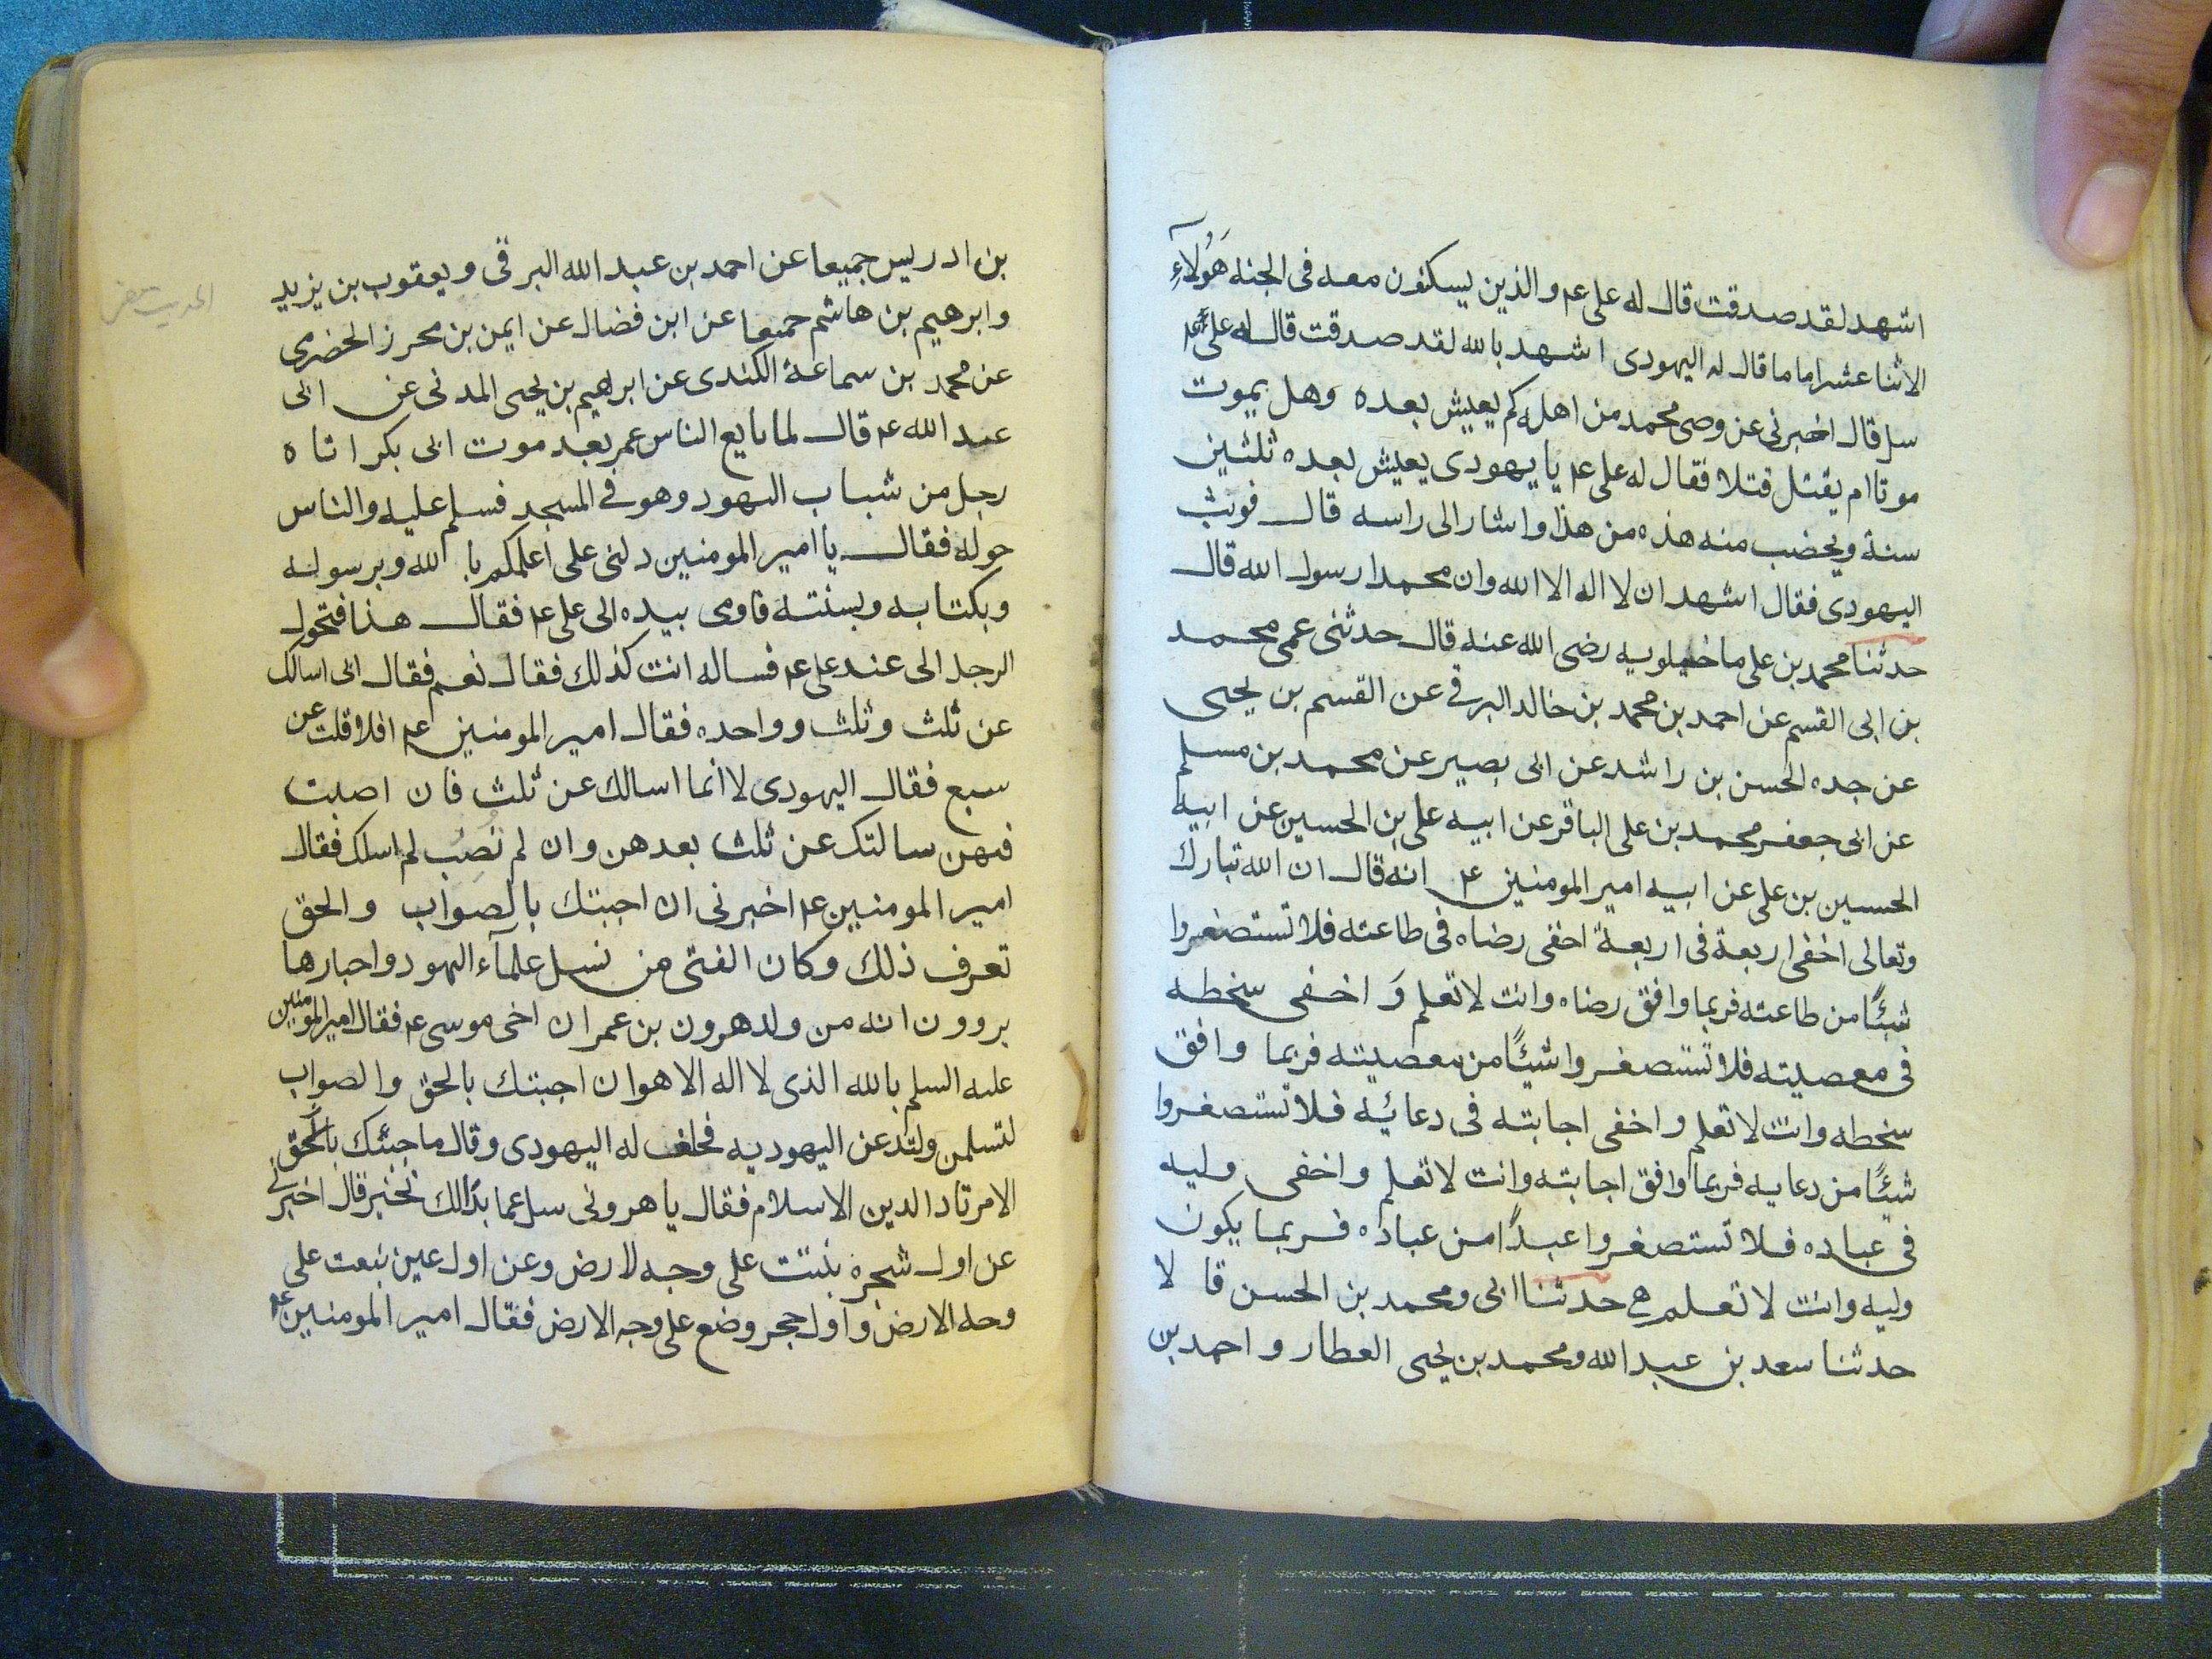 اشهد لقد صدقت قال له على ع‍م والذين يسكنون معه فى الجنه هَؤُلآءِ
الاثنا عشر اماما قال له اليهودى اشهد بالله لقد صدقت قال له على ع‍م
سل قال اخبرنى عن وصى محمد من اهله كم يعيش بعده وهل يموت
موتا ام يقتل قتلا فقال له على ع‍م يا يهودى يعيش بعده ثلثين
سنة ويخضب منه هذه من هذا واشار الى راسه قال فوثب
اليهودى فقال اشهد ان لا اله الا الله وان محمدا رسول الله قال
حدثنا محمد بن على ماجيلويه رضى الله عنه قال حدثنى عمى محمد
بن ابى القسم عن احمد بن محمد بن خالد البرقى عن القسم بن يحيى
عن جده الحسن بن راشد عن ابى بصير عن محمد بن مسلم
عن ابى جعفر محمد بن على الباقر عن ابيه على بن الحسين عن ابيه
الحسين بن على عن ابيه امير المومنين ع‍م انه قال ان الله تبارك
وتعالى اخفى اربعة فى اربعة اخفى رضاه فى طاعته فلا تستصغروا
شيئًا من طاعته فربما وافق رضاه وانت لا تعلم وَ اخفى سخطه
فى معصيته فلا تستصغروا شيئًا من معصيته فربما وافق
سخطه وانت لا تعلم واخفى اجابته فى دعائه فلا تستصغروا
شيئًا من دعايه فربما وافق اجابته وانت لا تعلم واخفى وليه
فى عباده فلا تستصغروا عبدًا من عباده فربما يكون
وليه وانت لا تعلم حدثنا ابى ومحمد بن الحسن قا لا
حدثنا سعد بن عبد الله ومحمد بن يحيى العطار واحمد بن
بن ادريس جميعا عن احمد بن عبد الله البرقى ويعقوب بن يزيد
وابرهيم بن هاشم جميعا عن ابن فضال عن ايمن بن محرز الحضرمى
عن محمد بن سماعة الكندى عن ابراهيم بن يحيى المدنى عن ابى
عبد الله ع‍م قال لما بايع الناس عمر بعد موت ابى بكر اتاه
رجل من شباب اليهود وهو فى المسجد فسلم عليه والناس
حوله فقال يا امير المومنين دلنى على اعلمكم با لله وبرسوله
وبكتابه وبسنته فاومى بيده الى على ع‍م فقال هذا فتحول
الرجل الى عند على ع‍م فساله انت كذلك فقال نعم فقال انى اسالك
عن ثلث وثلث وواحده فقال امير المومنين ع‍م افلا قلت عن
سبع فقال اليهودى لا انما اسالك عن ثلث فان اصبت
فيهن سالتك عن ثلث بعدهن وان لم تُصِب لم اسلك فقال
امير المومنين ع‍م اخبرنى ان اجبتك بالصواب والحق
تعرف ذلك وكان الفتى من نسل علمآء اليهود واحبارها
يروون انه من ولد هرون بن عمران اخى موسى ع‍م فقال امير المومنين
عليه السلم بالله الذى لا اله الا هو ان اجبتك بالحق والصواب
لتسلمن ولتدعن اليهوديه فحلف له اليهودى وقال ما جئتك بالحق
الا مرتاد الدين الاسلام فقال يا هرونى سل عما بدالك تخبر قال اخبرنى
عن اول شجره نبتت على وجه لارض وعن اول عين نبعت على
وجه الارض واول حجر وضع على وجه الارض فقال امير المومنين ع‍م